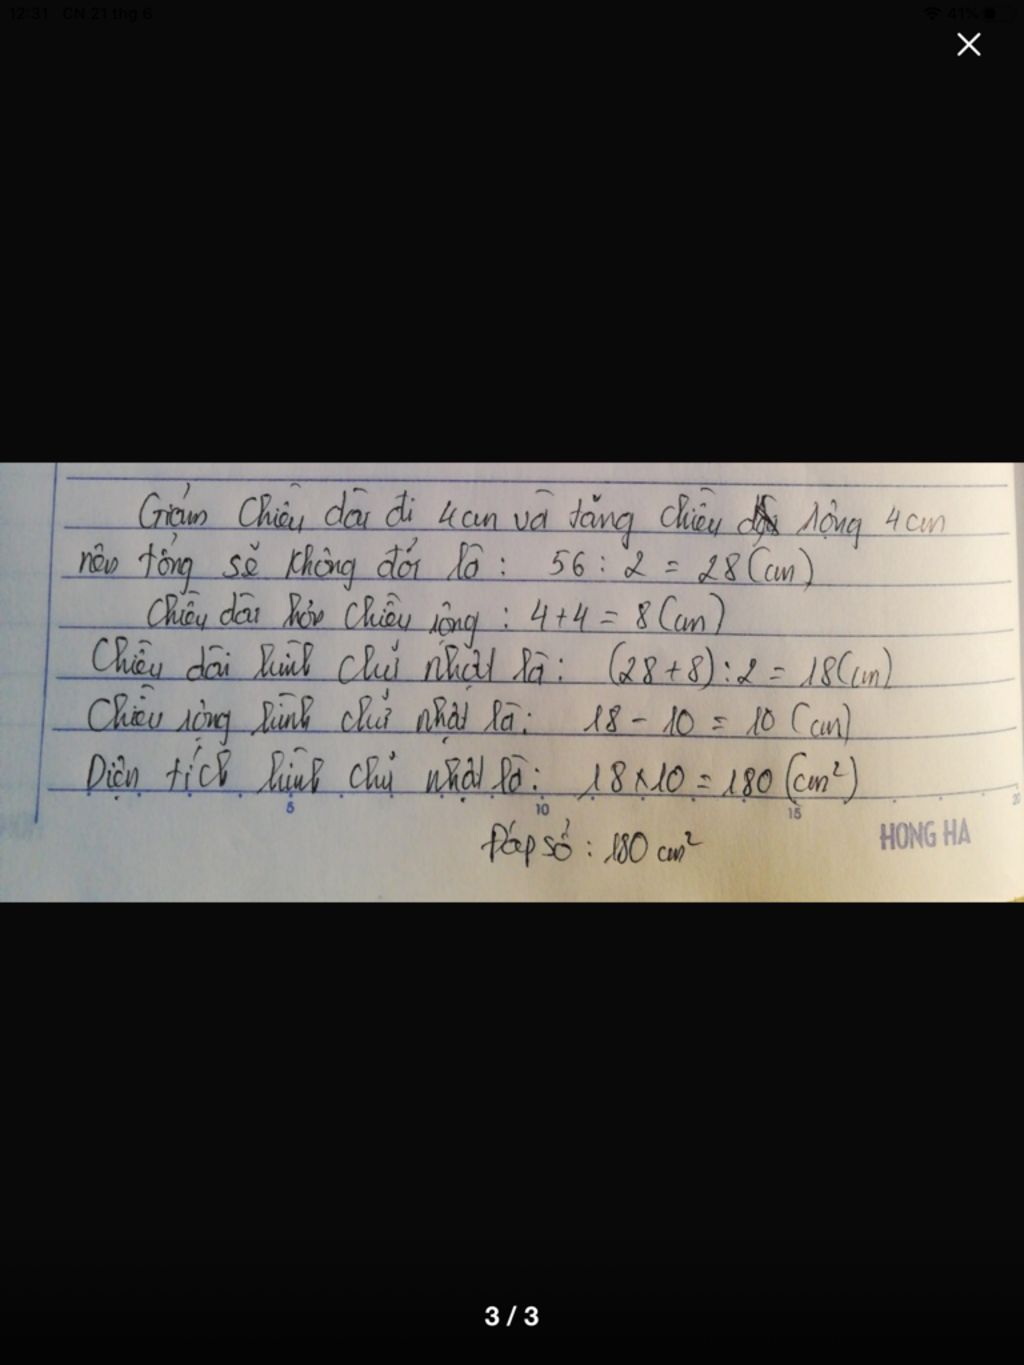 12:31 CN 21 thg 6 41%
Giảm chiều dài đi 4cm và tăng chiều rộng 4cm
nên tổng sẽ không đổi là : 56 : 2 = 28 (cm)
Chiều dài hơn chiều rộng : 4+4 = 8 (cm)
Chiều dài hình chữ nhật là : (28+8) : 2 = 18 (cm)
Chiều rộng hình chữ nhật là : 18 - 10 = 10 (cm)
Diện tích hình chữ nhật là : 18 x 10 = 180 (cm²)
5 10 15 20
Đáp số : 180 cm²
HONG HA
3 / 3